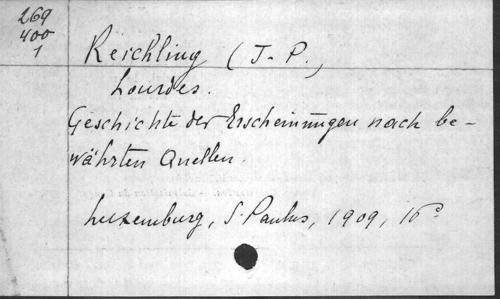 269
400
1
Reichling (J. P.,
Lourdes.
Geschichte der Erscheinungen nach be-
währten Quellen.
Luxemburg, S. Paulus, 1909, 16°